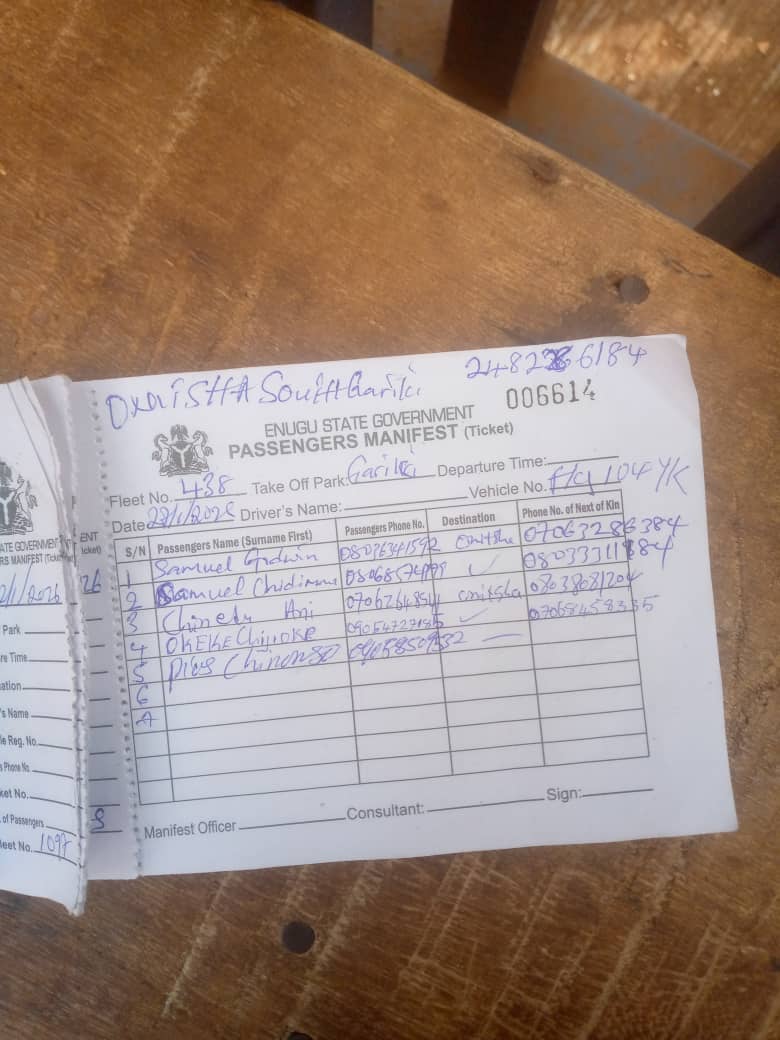 ONITSHA South Gariki 24823 6184
ENUGU STATE GOVERNMENT 006614
PASSENGERS MANIFEST (Ticket)
Fleet No. 438 Take Off Park: Gariki Departure Time:
Date Driver's Name: Vehicle No. 104 YK
S/N Passengers Name (Surname First) Passengers Phone No. Destination Phone No. of Next of Kin
1 Samuel Godwin 08036341592 onitsha 07063286384
2 Samuel Chidimma ✓
3 Chinedu Ani onitsha
4 OKEKE Chijioke ✓ 07068458335
5 Pius Chinonso 09058509532 —
6
Manifest Officer Consultant: Sign:
ENT
icket)
26
S
ATE GOVERNMENT
RS MANIFEST (Ticket)
/1/2026
Park
re Time
ation
's Name
le Reg. No.
s Phone No.
ket No.
of Passengers
leet No. 1097